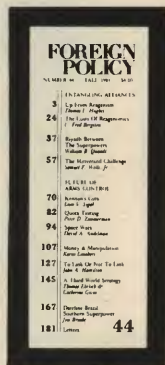 FOREIGN
POLICY
NUMBER 44 FALL 1981
ENTANGLING ALLIANCES
3 Up From Reaganism
Thomas L. Hughes
24 The Costs Of Reaganomics
C. Fred Bergsten
37 Riyadh Between
The Superpowers
William B. Quandt
57 The Mitterrand Challenge
Samuel F. Wells, Jr.
FUTURE OF
ARMS CONTROL
70 Kennan's Cuts
Leon V. Sigal
82 Quota Testing
Peter D. Zimmerman
94 Space Wars
David A. Andelman
107 Money & Manipulation
Karin Lissakers
127 To Tank Or Not To Tank
John A. Hamilton
145 A Third World Strategy
Thomas Ehrlich &
Catherine Gwin
167 Daytime Brazil
Southern Superpower
Jim Brooke
181 Letters 44